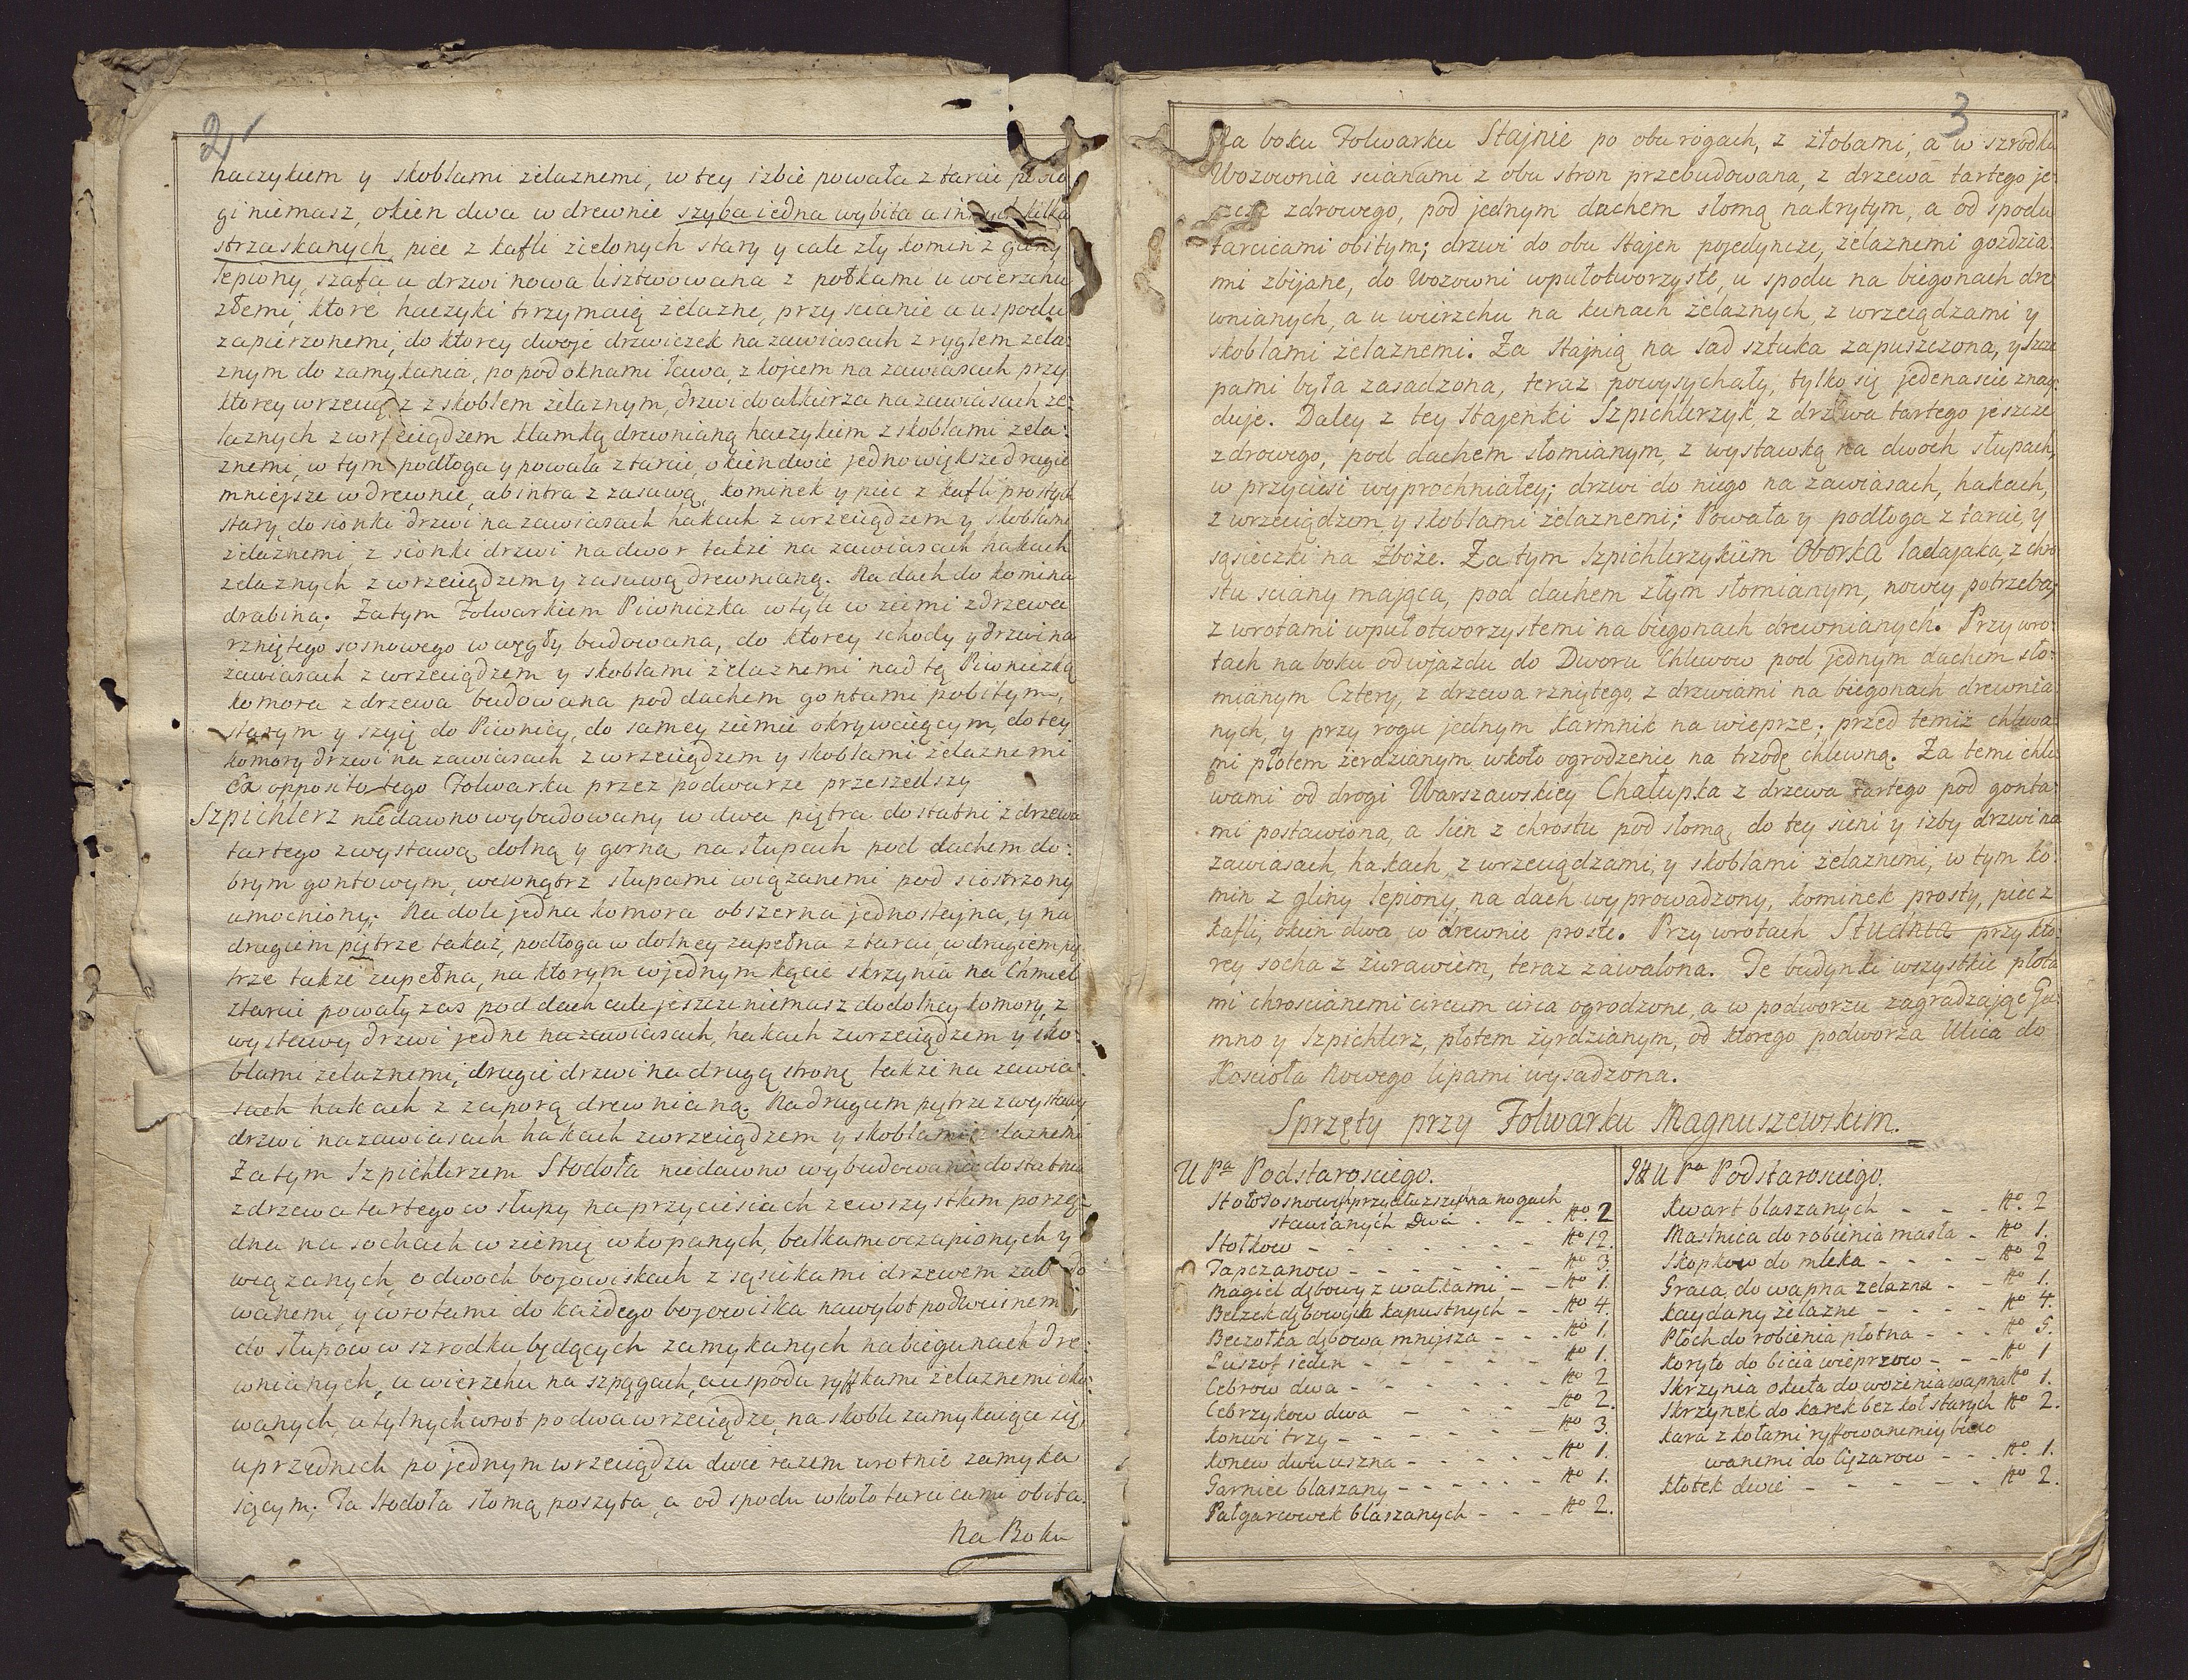 2
haczykiem y skoblami żelaznemi, w tey izbie powała z tarcic
gi niemasz, okien dwa w drewnie szyba iedna wybita a innych kilka
strzaskanych, piec z kafli zielonych stary y cale zły komin z gliny
lepiony, szafa u drzwi nowa lisztwowana z połkami u wierzchu
złemi, ktore haczyki trzymaią żelazne, przy scianie a u spodu
zapierzonemi, do ktorey dwoje drzwiczek na zawiasach z ryglem zela:
znym do zamykania, po pod oknami ława, z łojem na zawiasach przy
ktorey wrzeciądz z skoblem żelaznym, drzwi do alkierza na zawiasach że:
laznych z wrzeciądzem klamką drewnianą haczykiem z skoblami zela:
znemi, w tym podłoga y powała z tarcic, okien dwie jedno większe drugie
mniejsze w drewnie, ab intra z zasuwą, kominek y piec z kafli prostych
stary, do sionki drzwi na zawiasach hakach z wrzeciądzem y skoblami
żelaznemi, z sionki drzwi na dwor także na zawiasach hakach
zelaznych z wrzeciądzem y zasuwą drewnianą. Na dach do komina
drabina. Za tym Folwarkiem Piwniczka w tyle w ziemi z drzewa
rzniętego sosnowego w węgły budowana, do ktorey schody y drzwi na
zawiasach z wrzeciądzem y skoblami żelaznemi nad tą Piwniczką
komora z drzewa budowana pod dachem gontami pobitym,
starym y szyią do Piwnicy, do samey ziemie okrywaiącym, do tey
komory drzwi na zawiasach z wrzeciądzem y skoblami żelaznemi
Ex opposito tego Folwarku przez podworze przeszedszy
Szpichlerz niedawno wybudowany w dwa piętra dostatni z drzewa
tartego z wystawą dolną y gorną na słupach pod dachem do:
brym gontowym, wewnątrz słupami wiązanemi pod siostrzony
umocniony: Na dole jedna komora obszerna jednostajna, y na
drugiem piętrze takaż, podłoga w dolney zupełna z tarcic, w drugiem pię
trze także zupełna, na ktorym w jednym kącie skrzynia na Chmiel
z tarcic powały zas pod dach cale jeszcze niemasz do dolney komory, z
wystawy drzwi jedne na zawiasach, hakach z wrzeciądzem y sko:
blami żelaznemi, drugie drzwi na drugą stronę także na zawia:
sach hakach z zaporą drewnianą. Na drugiem piętrze z wystawy
drzwi na zawiasach hakach z wrzeciądzem y skoblami żelaznemi
Za tym Szpichlerzem Stodoła niedawno wybudowana dostatnia
z drzewa tartego w słupy na przyciesiach ze wszystkim porzą:
dna na sochach w ziemię wkopanych, balkami oczapionych y
wiązanych, o dwoch bojowiskach z sąsiekami drzewem zabudo
wanemi, y wrotami do każdego bojowiska na wylot podwuinemi
do słupow w szrodku będących zamykanych na biegunach dre:
wnianych, u wierzchu na szpągach, a u spodu ryfkami żelaznemi oku:
wanych, u tylnych wrot po dwa wrzeciądze, na skoble zamykaiące się,
u przednich po jednym wrzeciądzu dwie razem wrotnie zamyka
iącym. Ta Stodoła słomą poszyta, a od spodu wkoło tarcicami obita.
Na Boku
3
Na boku Folwarku Stajnie po obu rogach, z żłobami, a w szrodku
Wozownia scianami z obu stron przebudowana, z drzewa tartego je:
szcze zdrowego, pod jednym dachem słomą nakrytym, a od spodu
tarcicami obitym; drzwi do obu Stajen pojedyncze, żelaznemi goździa:
mi zbijane, do Wozowni wpułotworzyste, u spodu na biegonach dre
wnianych, a u wierzchu na kunach żelaznych, z wrzeciądzami y
skoblami żelaznemi. Za Stajnią na sad sztuka zapuszczona, y szcze
pami była zasadzona, teraz powysychały, tylko się jedenascie znay:
duje. Daley z tey Stajenki Szpichlerzyk, z drzewa tartego jeszcze
zdrowego, pod dachem słomianym, z wystawką na dwoch słupach,
w przyciesi wyprochniałey; drzwi do niego na zawiasach, hakach,
z wrzeciądzem y skoblami żelaznemi; Powała y podłoga z tarcic, y
sąsieczki na Zboże. Za tym Szpichlerzykiem Oborka ladajaka, z chro
stu sciany mająca, pod dachem złym słomianym, nowey potrzeba,
z wrotami wpułotworzystemi na biegonach drewnianych. Przy wro:
tach na boku od wjazdu do Dworu Chlewow pod jednym dachem sło:
mianym Cztery, z drzewa rzniętego, z drzwiami na biegonach drewnia:
nych, y przy rogu jednym Karmnik na wieprze; przed temiż chlewa:
mi płotem żerdzianym wkoło ogrodzenie na trzodę chlewną. Za temi chle
wami od drogi Warszawskiey Chałupka z drzewa tartego pod gonta:
mi postawiona, a sień z chrostu pod słomą, do tey sieni y izby drzwi na
zawiasach, hakach, z wrzeciądzami, y skoblami żelaznemi, w tym ko:
min z gliny lepiony, na dach wyprowadzony, kominek prosty, piec z
kafli, okien dwa w drewnie proste. Przy wrotach Studnia przy kto:
rey socha z żurawiem, teraz zawalona. Te budynki wszystkie płota
mi chroscianemi circum circa ogrodzone, a w podworzu zagradzające Gu:
mno y Szpichlerz, płotem żyrdzianym, od ktorego podworza Ulica do
Koscioła Nowego lipami wysadzona.
Sprzęty przy Folwarku Magnuszewskim.
U Pa Podstarosciego.
Stołow sosnowych przydłuzszych na nogach
stawianych Dwa - - - No. 2
Stołkow - - - - - - No 12.
Tapczanow - - - - - No 3.
Magiel dębowy z wałkami - - No 1.
Beczek dębowych kapustnych - - No 4.
Beczołka dębowa mnijsza - - - No 1.
Luszof ieden - - - - - No 1.
Cebrow dwa - - - - - No 2
Cebrzykow dwa - - - - No 2.
Konwi trzy - - - - - No 3.
Konew dwuuszna - - - - No 1.
Garniec blaszany - - - - No 1.
Pułgarcowek blaszanych - - - No 2.
It U Pa Podstarosciego.
Kwart blaszanych - - - No. 2
Masnica do robienia masła - No 1.
Skopkow do mleka - - - No 2
Graca do wapna żelazna - - No 1.
Kaydany żelazne - - - - No 4.
Płoch do robienia płotna - - - No 5.
Koryto do bicia wieprzow - - - No 1
Skrzynia okuta do wożenia wapna No 1.
Skrzynek do karek bez koł starych No 2.
Kara z kołami ryfowanemi y buxo
wanemi do Ciężarow - - - No. 1.
Kłotek dwie - - - - No 2.